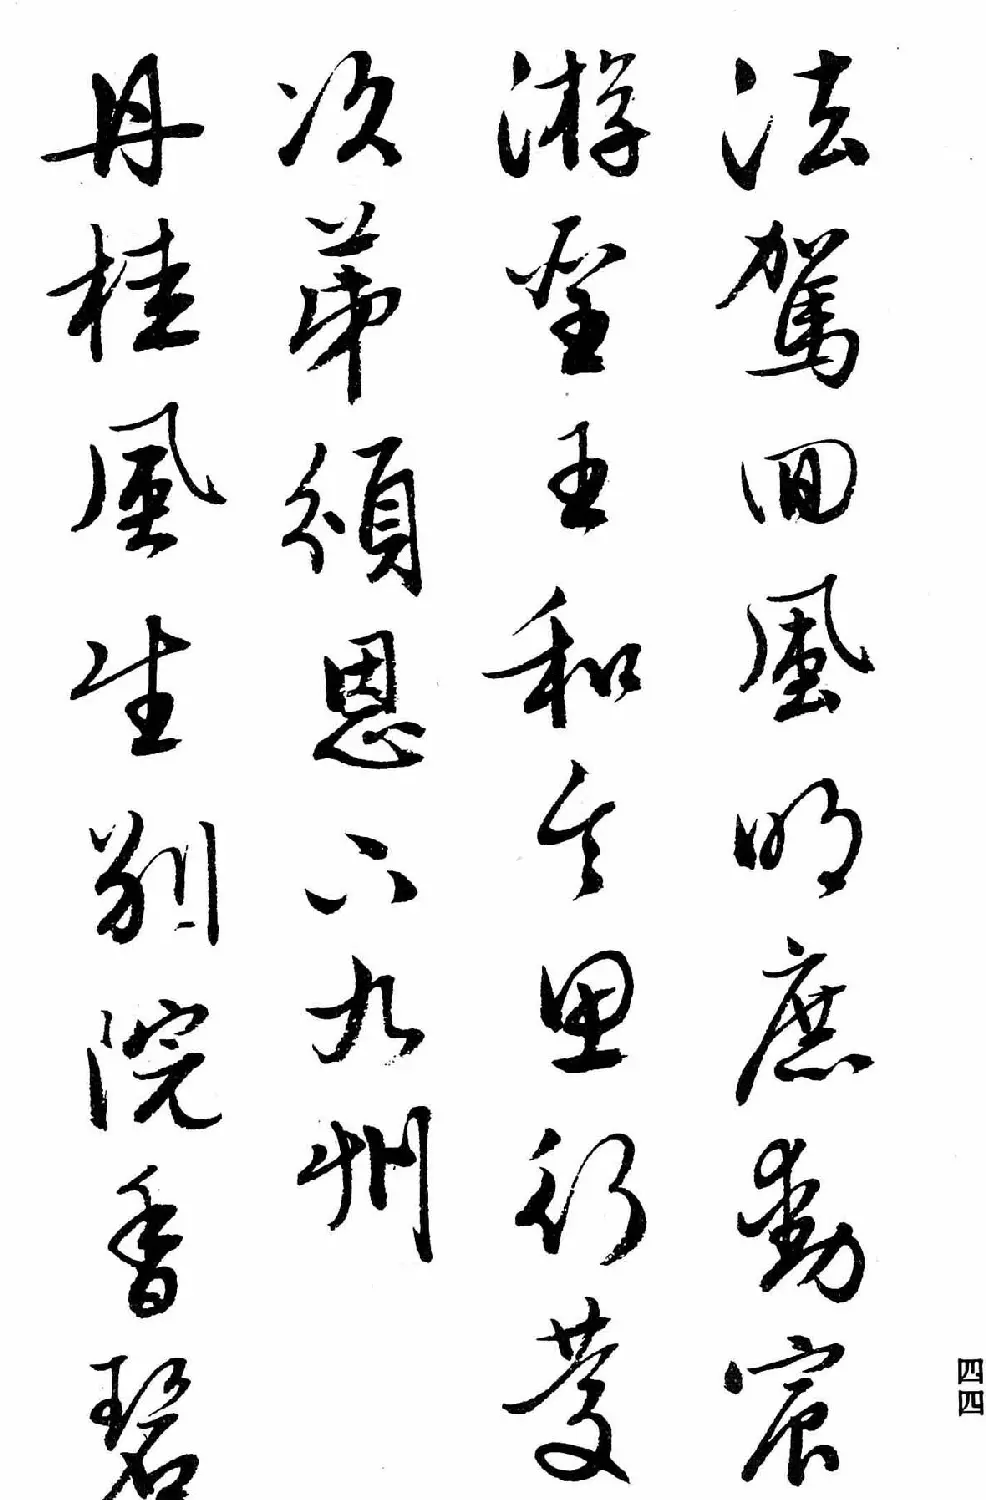 法駕回風明庶動宸
游聖王和氣里行慶
次第須恩下九州
丹桂風生別院香碧
四四